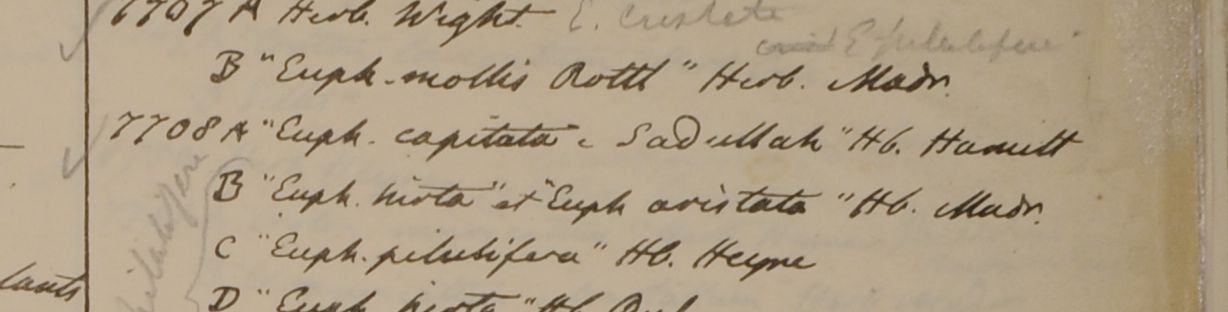 7707 A Herb. Wight. E. cristata
E pilulifera
B "Euph. mollis Rottl" Herb. Madr.
7708 A "Euph. capitata e Sadullah" Hb. Hamilt
B "Euph. hirta" et "Euph aristata" Hb. Madr.
C "Euph. pilulifera" Hb. Heyne
D "Euph. hirta" Hb
lants